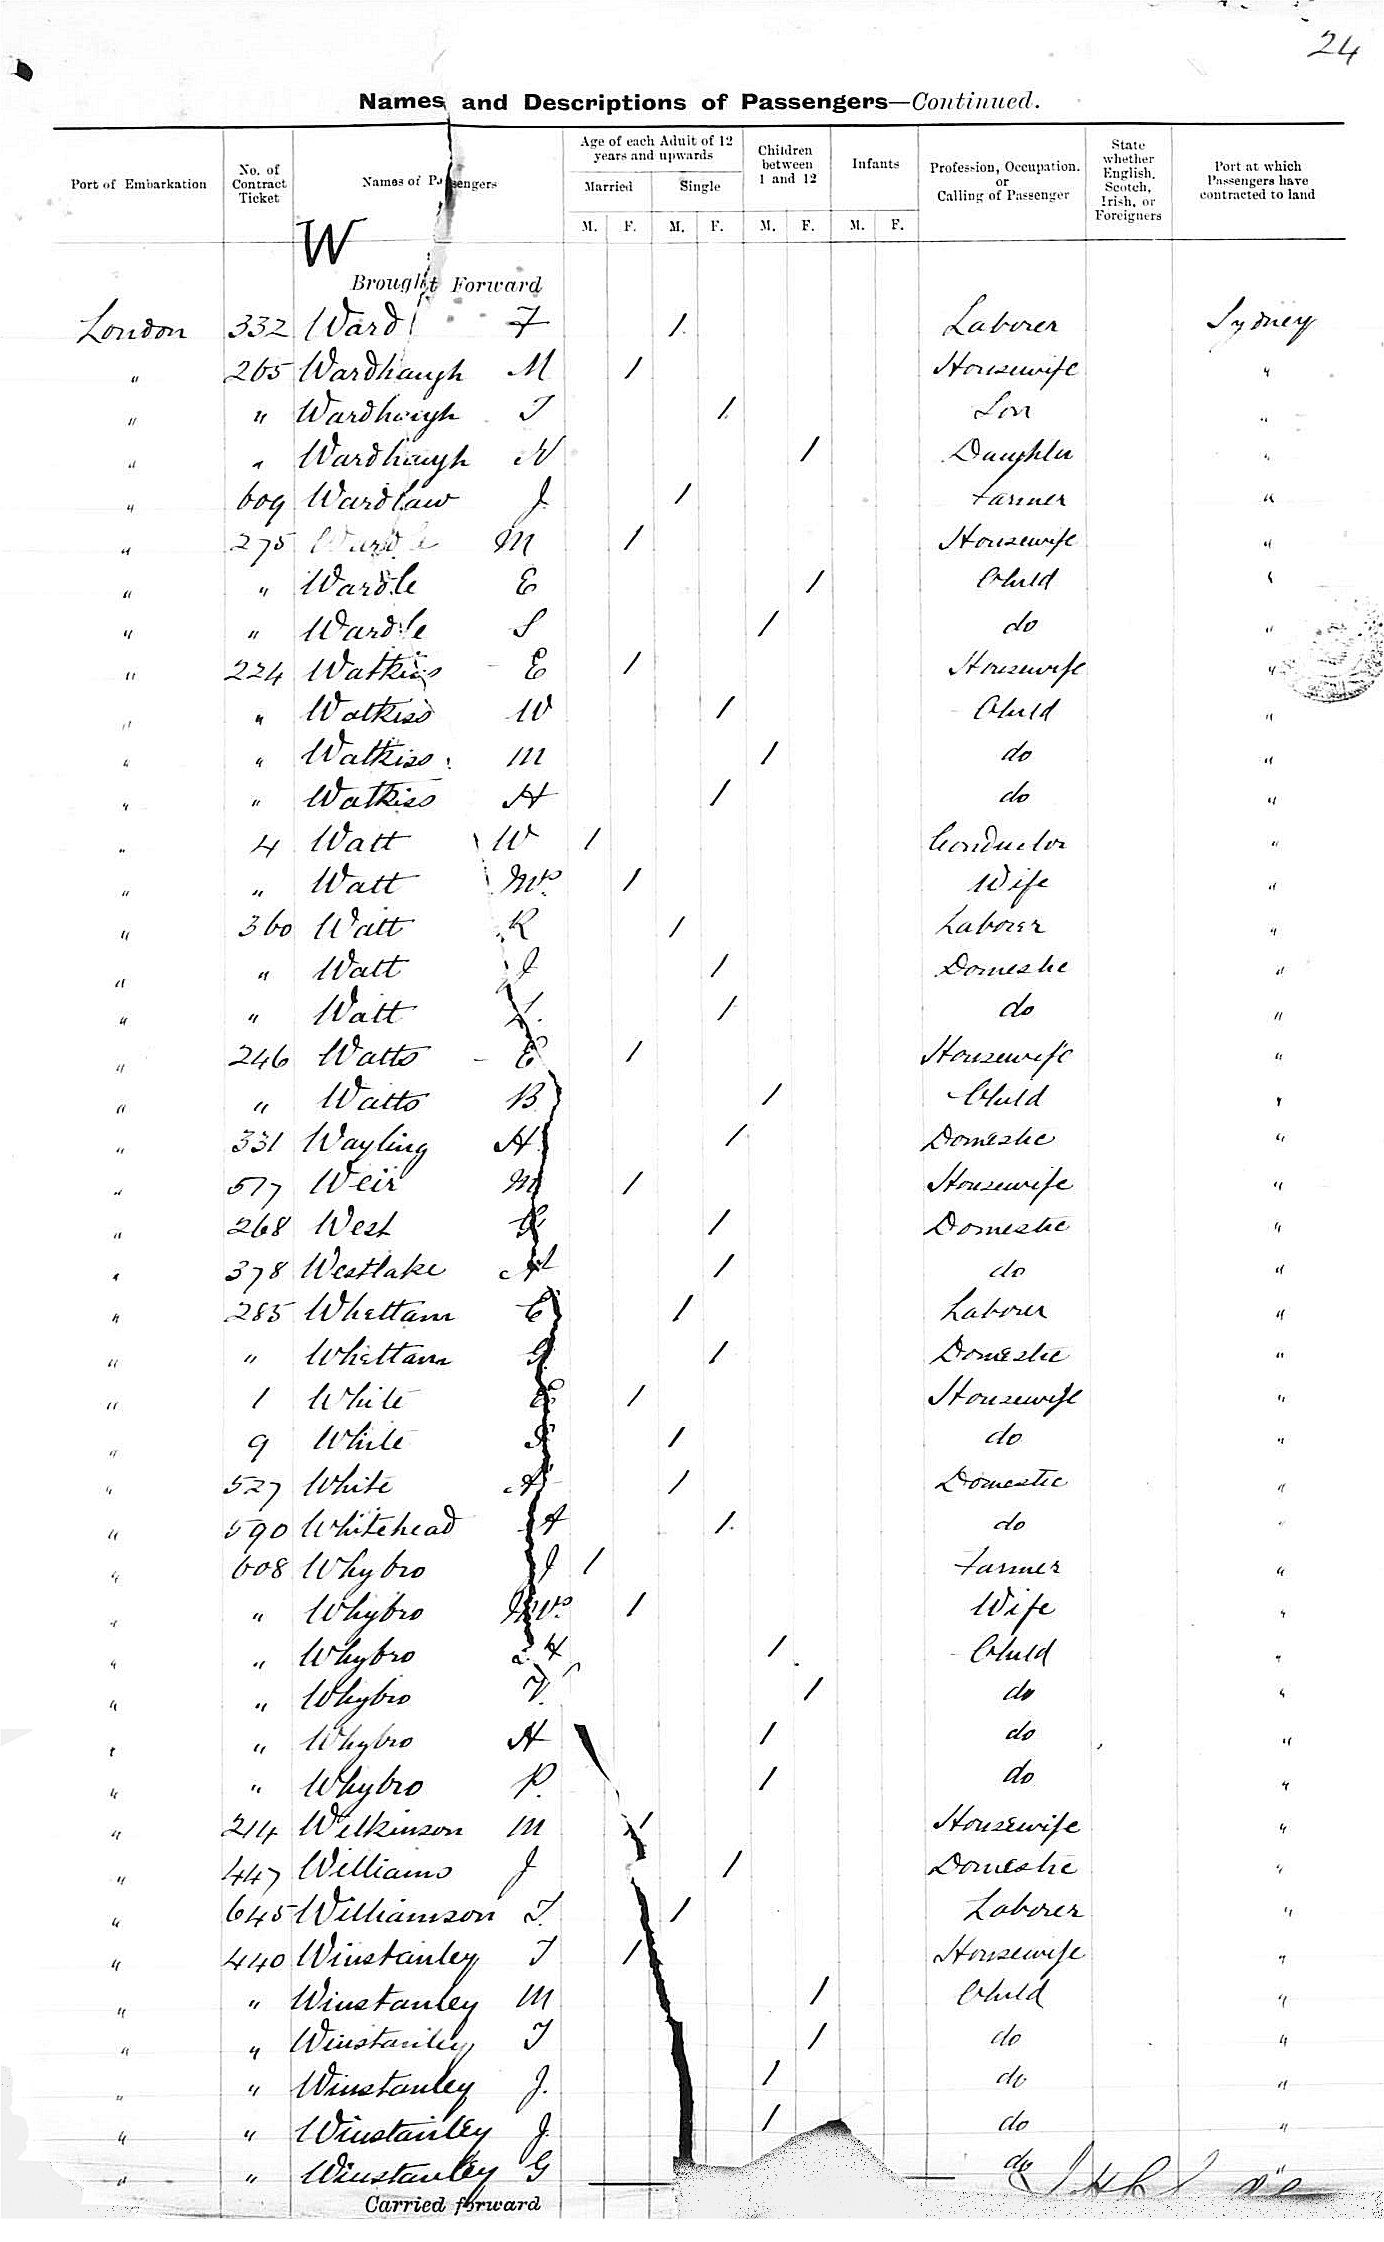 24
Names and Descriptions of Passengers—Continued.
Port of Embarkation No. of Contract Ticket Names of Passengers Age of each Adult of 12 years and upwards Married Single Children between 1 and 12 Infants Profession, Occupation, or Calling of Passenger State whether English, Scotch, Irish, or Foreigners Port at which Passengers have contracted to land
M. F. M. F. M. F. M. F.
W
Brought Forward
London 332 Ward F 1 Laborer Sydney
" 265 Wardhaugh M 1 Housewife "
" " Wardhaugh T 1 Son "
" " Wardhaugh N 1 Daughter "
" 609 Wardlaw J. 1 Farmer "
" 275 Wardle M 1 Housewife "
" " Wardle E 1 Child "
" " Wardle S 1 do "
" 224 Watkiss E 1 Housewife "
" " Watkiss W 1 Child "
" " Watkiss M 1 do "
" " Watkiss H 1 do "
" 4 Watt W 1 Conductor "
" " Watt Mrs. 1 Wife "
" 360 Watt R 1 Laborer "
" " Watt J 1 Domestic "
" " Watt 1 do "
" 246 Watts E 1 Housewife "
" " Watts B 1 Child "
" 331 Wayling H 1 Domestic "
" 517 Weir M 1 Housewife "
" 268 West 1 Domestic "
" 378 Westlake A 1 do "
" 285 Whettam C 1 Laborer "
" " Whettam G 1 Domestic "
" 1 White E 1 Housewife "
" 9 White 1 do "
" 527 White A 1 Domestic "
" 590 Whitehead A 1 do "
" 608 Whybro J 1 Farmer "
" " Whybro Mrs. 1 Wife "
" " Whybro H 1 Child "
" " Whybro V. 1 do "
" " Whybro H 1 do "
" " Whybro P. 1 do "
" 214 Wilkinson M 1 Housewife "
" 447 Williams J 1 Domestic "
" 645 Williamson T. 1 Laborer "
" 440 Winstanley T 1 Housewife "
" " Winstanley M 1 Child "
" " Winstanley T 1 do "
" " Winstanley J. 1 do "
" " Winstanley J. 1 do "
" " Winstanley G do "
Carried forward